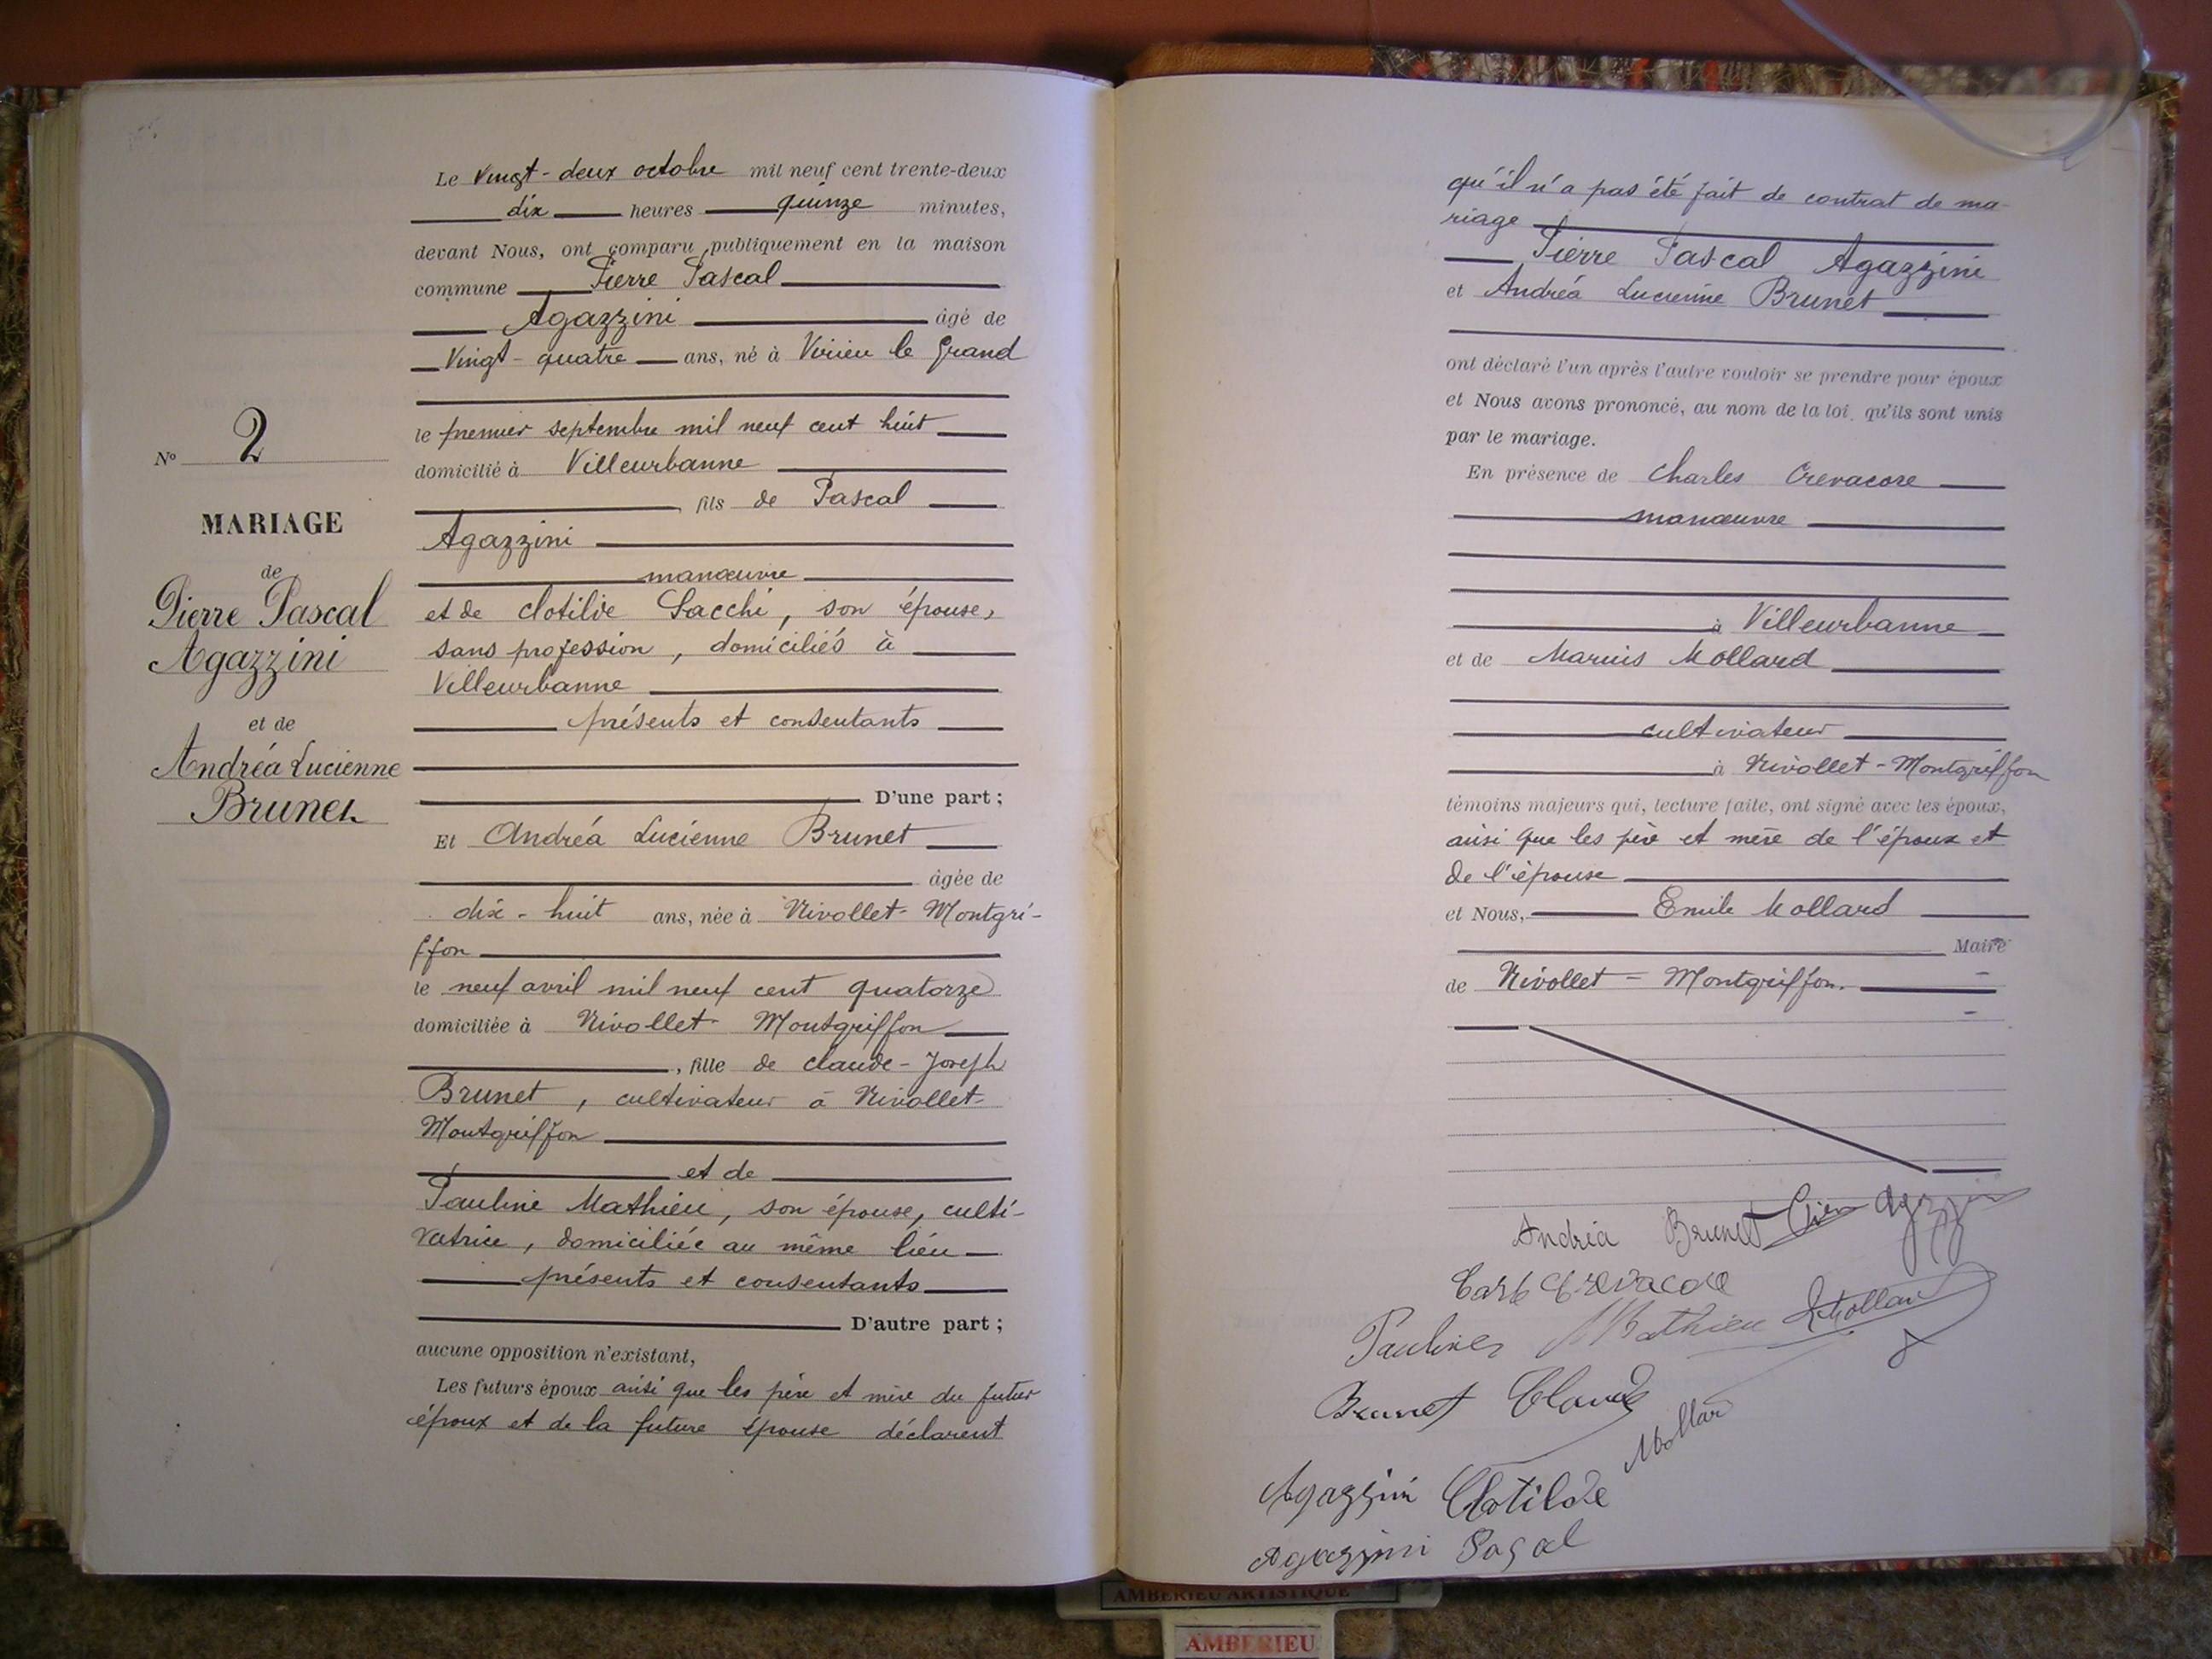 N° 2
MARIAGE
de
Pierre Pascal
Agazzini
et de
Andréa Lucienne
Brunet
Le vingt-deux octobre mil neuf cent trente-deux
dix heures quinze minutes,
devant Nous, ont comparu publiquement en la maison
commune Pierre Pascal
Agazzini âgé de
Vingt-quatre ans, né à Virieu le Grand
le premier septembre mil neuf cent huit
domicilié à Villeurbanne
, fils de Pascal
Agazzini
manœuvre
et de Clotilde Sacchi, son épouse,
sans profession, domiciliés à
Villeurbanne
présents et consentants
D'une part ;
Et Andréa Lucienne Brunet
âgée de
dix-huit ans, née à Nivollet-Montgri-
ffon
le neuf avril mil neuf cent quatorze
domiciliée à Nivollet-Montgriffon
, fille de Claude-Joseph
Brunet, cultivateur à Nivollet-
Montgriffon
et de
Pauline Mathieu, son épouse, culti-
vatrice, domiciliée au même lieu
présents et consentants
D'autre part ;
aucune opposition n'existant,
Les futurs époux ainsi que les père et mère du futur
époux et de la future épouse déclarent
qu'il n'a pas été fait de contrat de ma-
riage
Pierre Pascal Agazzini
et Andréa Lucienne Brunet
ont déclaré l'un après l'autre vouloir se prendre pour époux
et Nous avons prononcé, au nom de la loi, qu'ils sont unis
par le mariage.
En présence de Charles Crevacore
manœuvre
à Villeurbanne
et de Marius Mollard
cultivateur
à Nivollet-Montgriffon
témoins majeurs qui, lecture faite, ont signé avec les époux,
ainsi que les père et mère de l'époux et
de l'épouse
et Nous, Emile Mollard
Maire
de Nivollet=Montgriffon.
Andréa Brunet
Crevacore
Pauline Mathieu
Brunet Claude
Mollard
Agazzini Clotilde
Agazzini Pasqal
AMBERIEU ARTISTIQUE
AMBERIEU